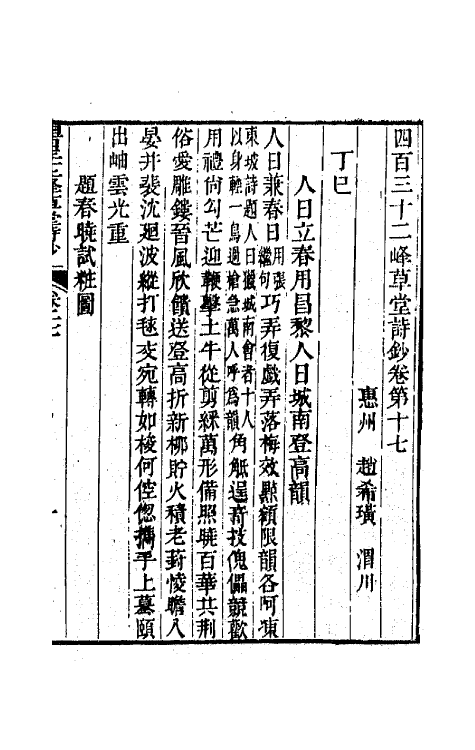 四百三十二峰草堂詩鈔卷第十七
惠州　趙希璜　渭川
丁巳
人日立春用昌黎人日城南登高韻
人日兼春日用張繼句巧弄復戲弄落梅效點額限韻各阿凍
東坡詩題人日獵城南會者十人以身輕一鳥過槍急萬人呼為韻角觝逞奇技傀儡競歡
用禮尚勾芒迎鞭擊土牛從剪綵萬形備照曉百華共荆
俗愛雕鏤晉風欣饋送登高折新柳貯火積老葑悛瞻入
晏井裴沈廻波縱打毬支宛轉如梭何倥偬攜手上墓頤
出岫雲光重
趙春曉試粧圖